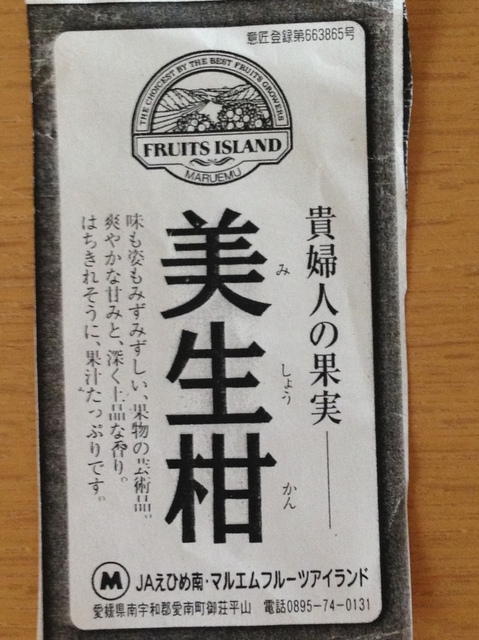 意匠登録第663865号
THE CHOICEST BY THE BEST FRUITS GROWERS
FRUITS ISLAND
MARUEMU
貴婦人の果実
美生柑
み しょう かん
味も姿もみずみずしい、果物の芸術品。
爽やかな甘みと、深く上品な香り。
はちきれそうに、果汁たっぷりです。
M JAえひめ南・マルエムフルーツアイランド
愛媛県南宇和郡愛南町御荘平山 電話0895-74-0131